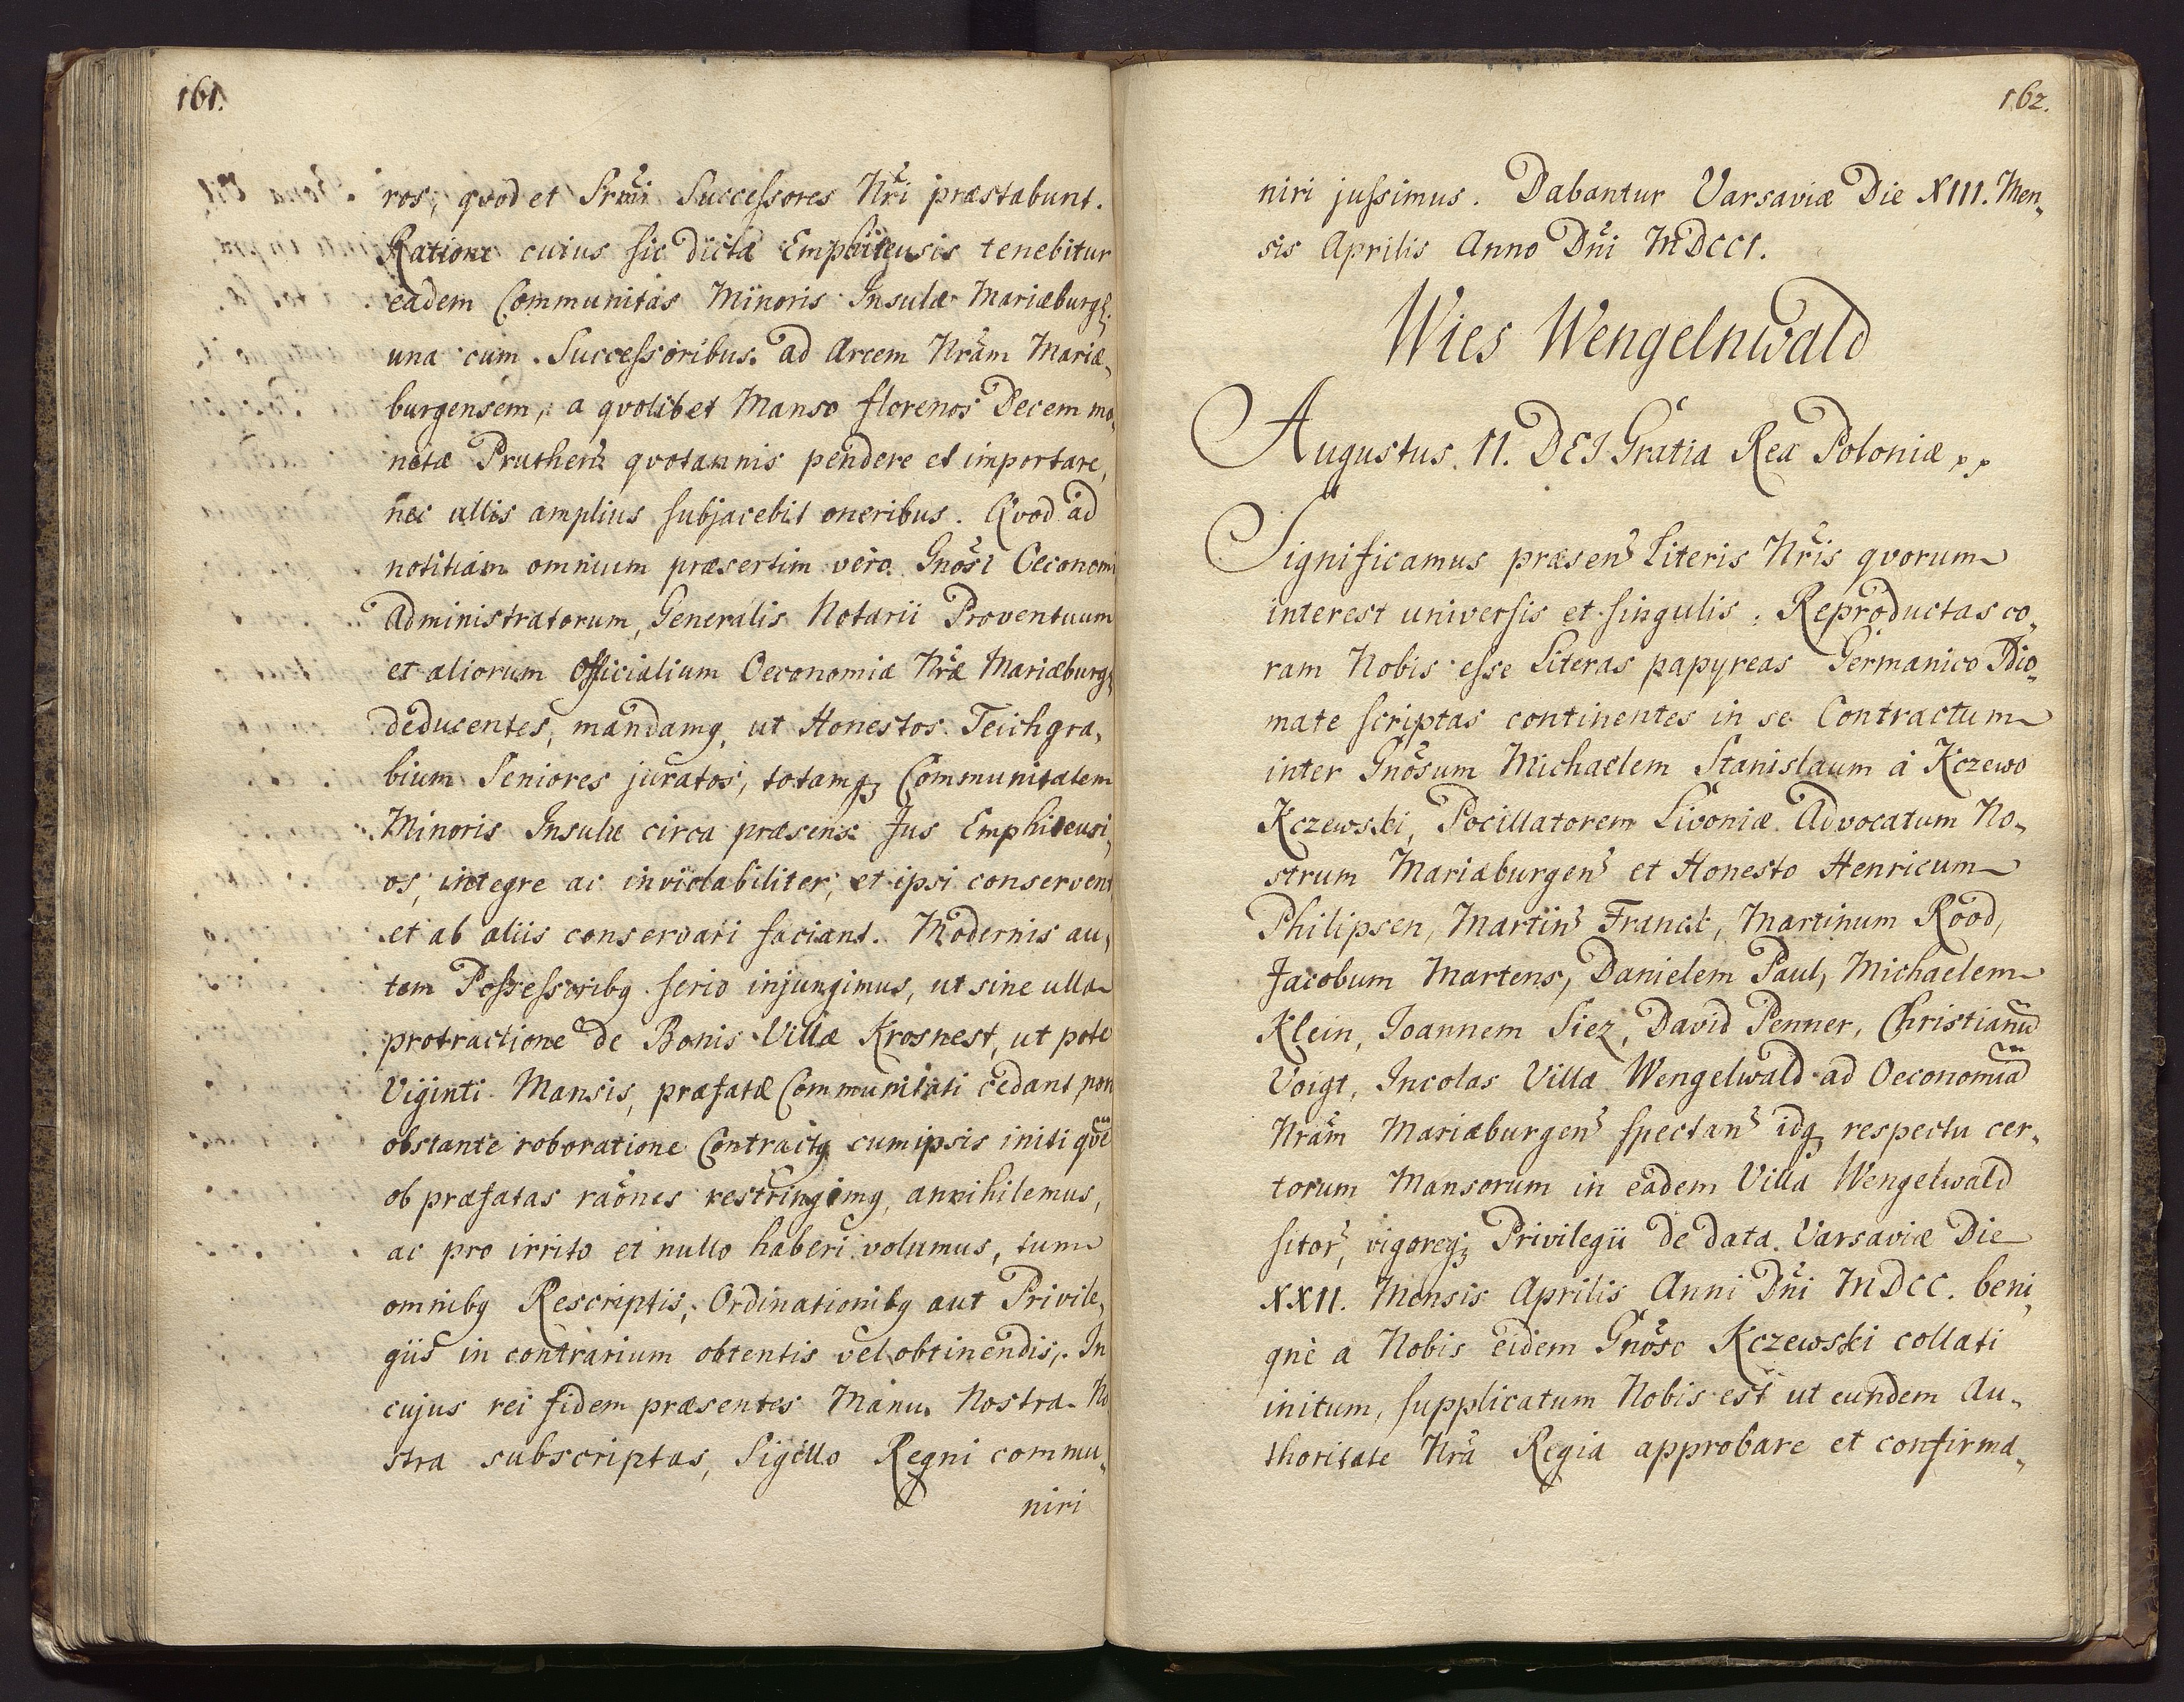 161.
ros, qvod et Srmi Successores Nri præstabunt.
Ratione cuius sic dictæ Emphiteusis tenebitur
eadem Communitas Minoris Insulæ Mariæburg:
una cum Successoribus ad Arcem Nram Mariæ„
burgensem, a qvolibet Manso florenos Decem mo„
netæ Pruthens qvotannis pendere et importare,
nec ullis amplius subjacebit oneribus. Qvod ad
notitiam omnium præsertim vero Gnosi Oeconomi
Administratorum, Generalis Notarii Proventuum
et aliorum Officialium Oeconomiæ Nræ Mariæburg:
deducentes, mandamg, ut Honestos Teichgra„
bium Seniores juratos, totamqz Communitatem
Minoris Insulæ circa præsens Jus Emphiteusi„
os, integre ac inviolabiliter, et ipsi conservent
et ab aliis conservari faciant. Modernis au„
tem Possessoribg serio injungimus, ut sine ulla
protractione de Bonis Villæ Krosnest, ut pote
Viginti Mansis, præfatæ Communitati cedant, non
obstante roboratione Contractg cum ipsis initi qvē
ob præfatas raones restringimg, annihilemus,
ac pro irrito et nullo haberi volumus, tum
omnibg Rescriptis, Ordinationibg aut Privile„
giis in contrarium obtentis vel obtinendis, In
cujus rei fidem præsentes Manu Nostra No
stra subscriptas, Sigillo Regni commu„
niri
162.
niri jussimus. Dabantur Varsaviæ Die XIII. Men„
sis Aprilis Anno Dni MDCCI.
Wies Wengelnwald
Augustus II. DEI Gratia Rex Poloniæ pp
Significamus præsen Literis Nris qvorum
interest universis et singulis. Reproductas co„
ram Nobis esse Literas papyreas Germanico Idio„
mate scriptas continentes in se Contractum
inter Gnosum Michaelem Stanislaum à Kczewo
Kczewski, Pocillatorem Livoniæ Advocatum No„
strum Mariæburgen et Honesto Henricum
Philipsen, Martin Franck, Martinum Rood,
Jacobum Martens, Danielem Paul, Michaelem
Klein, Joannem Siez, David Penner, Christianū
Voigt, Incolas Villa Wengelwald ad Oeconomiā
Nram Mariæburgen spectan idq respectu cer„
torum Mansorum in eadem Villa Wengelwald
sitor, vigoreqz Privilegii de data Varsaviæ Die
XXII. Mensis Aprilis Anni Dni MDCC. beni„
gnè a Nobis eidem Gnoso Kczewski collati
initum, supplicatum Nobis est ut eundem Au„
thoritate Nra Regia approbare et confirma„